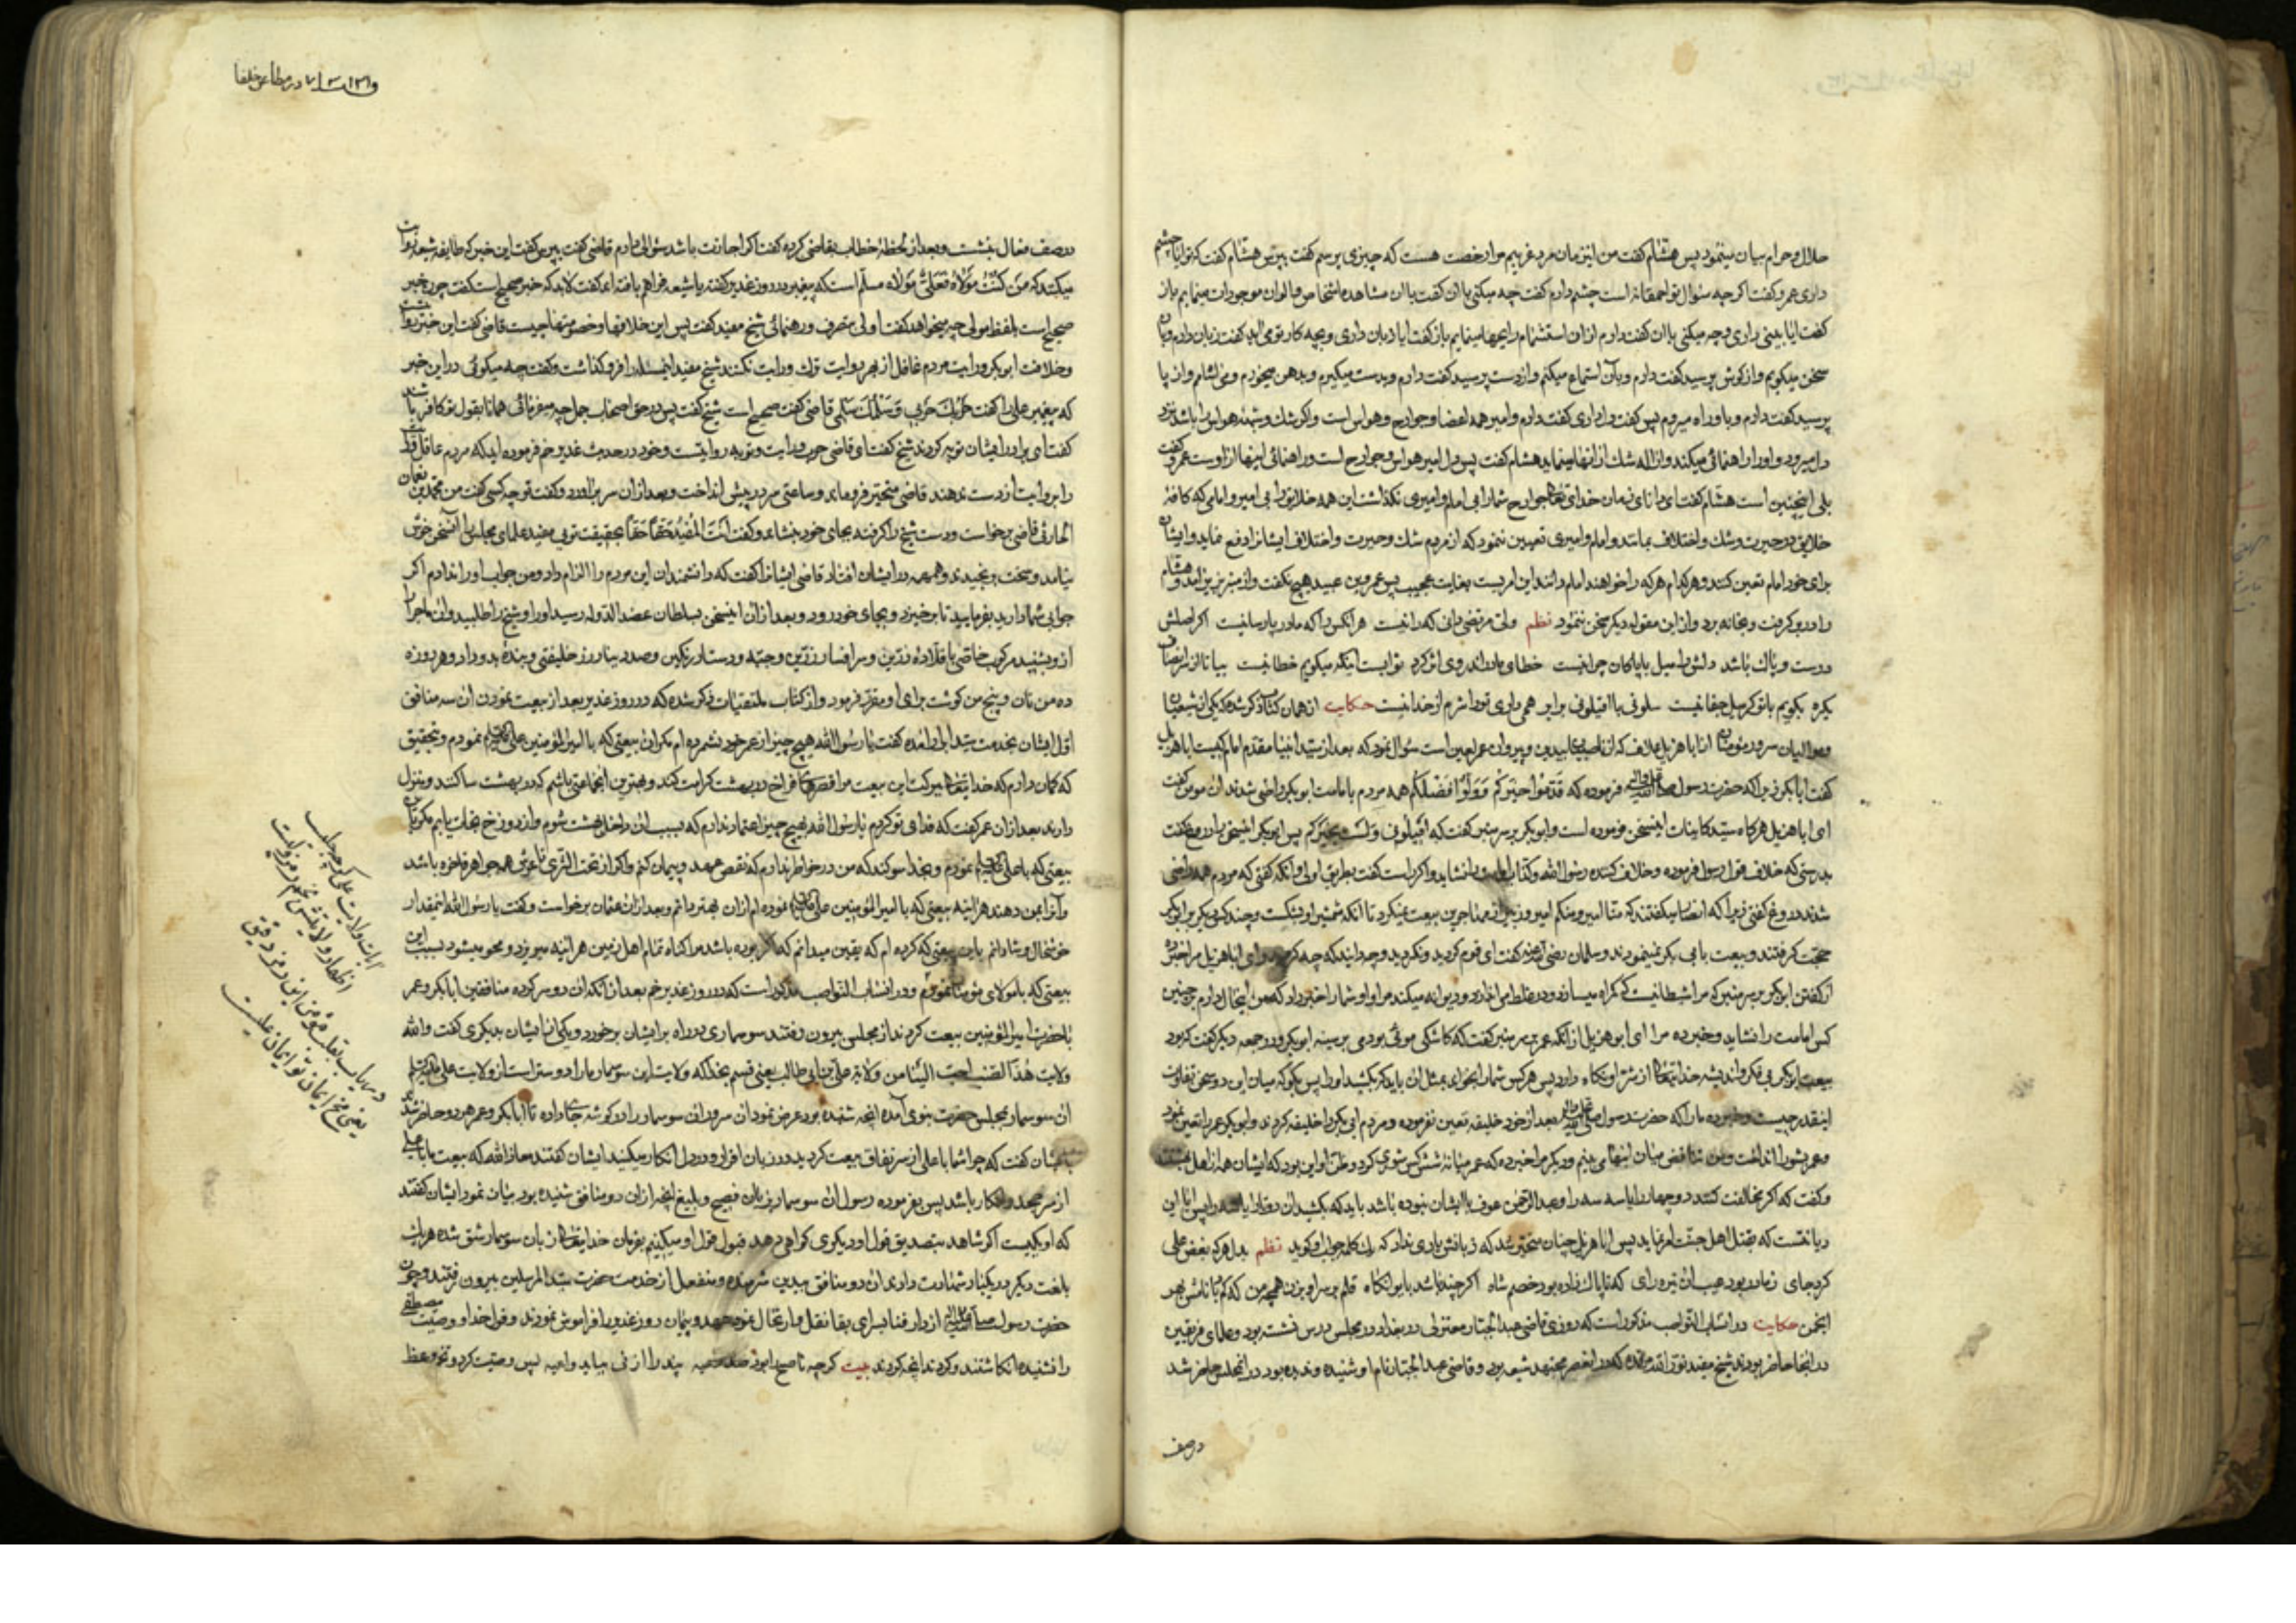 حلال و حرام بیان مینمود پس هشام گفت من اینزمان مرد غریبم مرا رخصت هست که چیزی پرسم گفت بپرس هشام گفت که تو ایا چشم
داری عمرو گفت اگر چه سئوال تو احمقانه است چشم دارم گفت چه میکنی باان گفت باان مشاهده اشخاص و الوان موجودات مینمایم باز
گفت ایا بینی داری و چه میکنی باان گفت دارم ازان استشمام رایحها مینمایم باز گفت ایا دهان داری و بچه کار تو می آید گفت زبان دارم و بآن
سخن میگویم و از گوش پرسید گفت دارم و بآن استماع میکنم و از دست پرسید گفت دارم و بدست میگیرم و بدهن میخورم و می اشام و از پا
پرسید گفت دارم و باو راه میروم پس گفت دل داری گفت دارم و امیر همه اعضا و جوارح و حواس است و اگر شک و شبهه حواس را باشد نزد
دل میرود و او را راهنمائی میکند و ازاله شک از انها مینماید هشام گفت پس دل امیر حواس و جوارح است و راهنمائی اینها از اوست عمرو گفت
بلی اینچنین است هشام گفت ای دانای زمان خدای تعالی جوارح شما را بی امام و امیری نگذاشت این همه خلایق را بی امیر و امامی که کافه
خلایق در حیرت و شک و اختلاف بمانند و امام و امیری تعیین ننمود که از مردم شک و حیرت و اختلاف ایشانرا دفع نماید و ایشان
برای خود امام تعین کنند و هر کدام هر که را خواهند امام دانند این امریست بغایت عجیب پس عمرو بن عبید هیچ نگفت و از منبر بزیر امد و هشام
را در بر گرفت و بخانه برد و از این مقوله دیگر سخن ننمود نظم ولی مرتضی دانی که را نیست هر انکس را که مادر پارسا نیست اگر اصلش
درست و پاک باشد دلش را میل با پاکان چرا نیست خطای مادر اندر وی اثر کرد توابست اینکه میگویم خطا نیست بیا تا از ره انصاف
یکره بگویم با تو گر میل جفا نیست سلونی با اقیلونی برابر همی داری تو را شرم از خدا نیست حکایت از همان کتاب مذکور شده که یکی از شیعیان
و موالیان سرور مؤمنان از ابا هزیل علاف که از ناصبی بیدین و پیروان عمر لعین است سئوال نمود که بعد از سید انبیا مقدم امام کیست ابا هزیل
گفت ابا بکر زیرا که حضرت رسول صلی الله علیه و آله فرموده که قدموا خیرکم و ولوا افضلکم همه مردم باماست ابو بکر راضی شدند ان مومن گفت
ای ابا هزیل هر گاه سید کاینات اینسخن فرموده است و ابو بکر بر سر منبر گفت که اقیلونی و لست بخیرکم پس ابو بکر اینسخن را دروغ گفت
بدرستی که خلاف قول رسول فرموده و خلاف کننده رسول الله و کذاب امامت را نشاید و اگر راست گفت بطریق اولی و انکه گفتی که مردم همه راضی
شدند دروغ گفتی زیرا که انصار میگفتند که منا امیر و منکم امیر و زبیر از مهاجرین بیعت نمیکرد تا انکه شمشیر او بشکست و چند کس دیگر بر ابو بکر
حجت گرفتند و بیعت با ابی بکر نمینمودند و سلمان رضی الله عنه گفت ای قوم کردید و نکردید و چه دانید که چه کردید و ای ابا هزیل مرا خبر ده
از گفتن ابو بکر بر سر منبر که مرا شیطانیست که گمراه میسازد و در غلط می اندازد و دیوانه میکند مرا و او شما را خبر داد که من اینحال دارم پس چنین
کس امامت را نشاید و خبر ده مرا ای ابو هزیل از انکه عمر بر سر منبر گفت که کاشکی موئی بودمی بر سینه ابو بکر و در جمعه دیگر گفت که بود
بیعت ابو بکر بی فکر و اندیشه خدا یتعالی از شر او نگاه دارد پس هر کس شما را بخواند بمثل ان باید که بکشید او را پس بگو که میان این دو سخن تفاوت
اینقدر چیست و خبر ده ما را که حضرت رسول صلی الله علیه و آله بعد از خود خلیفه تعین نفرموده و مردم ابی بکر را خلیفه کردند و ابو بکر عمر را تعین نمود
و عمر بشورا انداخت و من تناقض میان اینها می بینم و دیگر مرا خبر ده که عمر میانه شش کس شوری کرد و ظن او این بود که ایشان همه از اهل بهشتند
و گفت که اگر مخالفت کنند دو چهار را یا سه سه را و عبد الرحمن عوف با ایشان نبوده باشد باید که بکشید ان دو را یا سه را پس ایا این
دیانتست که بقتل اهل جنت امر نماید پس ابا هزیل چنان متحیر شد که زبانش یاری نداد که یک کلمه جواب او گوید نظم بدل هر که بغض علی
کرد جای ز مادر بود عیب ان تیره رای که ناپاک زاده بود خصم شاه اگر چند باشد بایوانگاه
انجمن حکایت در انساب النواصب مذکور است که روزی قاضی عبد الجبار معتزلی در بغداد در مجلس درس نشسته بود و علمای فریقین
در انجا حاضر بودند شیخ مفید نور الله مرقده که در انعصر مجتهد شیعه بود و قاضی عبد الجبار نام او شنیده و ندیده بود در انمجلس حاضر شد
در صف
در مطاعن خلفا
در صف نعال بنشست و بعد از لحظه خطاب بقاضی کرده گفت اگر اجازت باشد سئوالی دارم قاضی گفت بپرس گفت این خبر که طایفه شیعه روایت
میکنند که من کنت مولاه فعلی مولاه مسلم است که پیغمبر در روز غدیر گفته یا شیعه فراهم بافته اند گفت لابد که خبر صحیح است گفت چون خبر
صحیح است بلفظ مولی چه میخواهد گفت اولی متصرف و رهنمائی شیخ مفید گفت پس این خلافها و خصومتها چیست قاضی گفت این خبر روایت است
و خلافت ابو بکر درایت مردم عاقل از بهر روایت ترک درایت نکنند شیخ مفید اینمسئله را فرو گذاشت و گفت چه میگوئی در این خبر
که پیغمبر علی را گفت حربک حربی و سلمک سلمی قاضی گفت صحیح است شیخ گفت پس در حق اصحاب جمل چه میفرمائی همانا بقول تو کافر باشند
گفت ای برادر ایشان توبه کردند شیخ گفت ای قاضی حرب درایت و توبه روایتست و خود در حدیث غدیر خم فرموده اید که مردم عاقل درایت
را بروایت از دست ندهند قاضی متحیر فرو ماند و ساعتی سر در پیش انداخت و بعد ازان سر بر اورد و گفت تو چه کسی گفت من محمد بن نعمان
الحارثی قاضی برخاست و دست شیخ را گرفته بجای خود بنشاند و گفت انت المفید حقا حقا بحقیقت تویی مفید علمای مجلس را آنسخن خوش
نیامد و سخت برنجیدند و همهمه در ایشان افتاد قاضی ایشانرا گفت که دانشمندان این مردم را الزام داد و من جواب او را ندارم اگر
جوابی شما دارید بفرمایید تا برخیزد و بجای خود رود و بعد از ان اینسخن بسلطان عضد الدوله رسید او را و شیخ را طلبید و ان ماجرا
ازو شنید مرکب خاص با قلاده زرین و سر افسار زرین و جبه و دستار رنگین و صد دینار زر خلیفتی و بنده بدو داد و هر روزه
ده من نان و پنج من گوشت برای او مقرر فرمود و از کتاب ملتقیات ذکر شده که در روز غدیر بعد از بیعت نمودن ان سه منافق
اول ایشان بخدمت سید ابرار امده گفت یا رسول الله هیچ چیز از عمر خود نشمرده ام بکران بیعتی که با امیر المؤمنین علی نمودم و بتحقیق
که گمان دارم که خدا یتعالی ببرکت این بیعت مرا قصرهای فراخ در بهشت کرامت کند و بهترین انجماعتی باشم که در بهشت ساکند و منزل
دارند بعد از ان عمر گفت که فدای تو گردم یا رسول الله بهیچ چیز اعتماد ندارم که بسبب ان داخل بهشت شوم و از دوزخ نجات یابم مگر بان
بیعتی که با علی نمودم و بخدا سوگند که من در خاطر ندارم که نقض عهد و پیمان کنم و اگر از تحت الثری تا عرش همه جواهر فاخره باشد
و آنرا بمن دهند هر اینه بیعتی که با امیر المومنین علی نموده ام از ان بهتر دانم و بعد از ان عثمان برخاست و گفت یا رسول الله اینمقدار
خوشحال و شادانم باین بیعتی که کرده ام که یقین میدانم که اگر بوده باشد مرا گناه تمام اهل زمین هر اینه میریزد و محو میشود بسبب این
بیعتی که بمولای مؤمنان نمودم و در انساب النواصب مذکور است که در روز غدیر خم بعد از انکه ان دو سر کرده منافقین ابا بکر و عمر
با حضرت امیر المؤمنین بیعت کردند از مجلس بیرون رفتند سوسماری در راه برایشان برخورد و یکی از ایشان بدیگری گفت والله
ولایت هذا الضب احب الینا من ولایة علی بن ابی طالب یعنی قسم بخدا که ولایت این سوسمار ما را دوستر است از ولایت علی
ان سوسمار بمجلس حضرت نبوی آمده انچه شنیده بود عرض نمود ان سرور ان سوسمار را در گوشه جای داده تا ابا بکر و عمر هر دو حاضر شدند
بایشان گفت که چرا شما با علی از سر نفاق بیعت کردید در زبان اقرار و در دل انکار میکنید ایشان گفتند معاذ الله که بیعت ما با علی
از سر جحد و انکار باشد پس بفرموده رسول ان سوسمار بزبان فصیح و بلیغ انچه از ان دو منافق شنیده بود بیان نمود ایشان گفتند
که او یکیست اگر شاهد بتصدیق قول او دیگری گواهی دهد قبول قول او میکنیم بفرمان خدا یتعالی زبان سوسمار شق شده هر یک
بلغت دیگر در یکبار شهادت دادند ان دو منافق بیدین شرمنده و منفعل از خدمت حضرت سید المرسلین بیرون رفتند و چون
حضرت رسول صلی الله علیه و آله از دار فنا بسرای بقا نقل و ارتحال نمود عهد و پیمان روز غدیر را فراموش نمودند و قول خدا و وصیت مصطفی
را نشنیده انگاشتند و کردند انچه کردند بیت گرچه ناصح را بود صد داعیه پند را اذنی بباید واعیه پس وصیت کرد و تخم وعظ